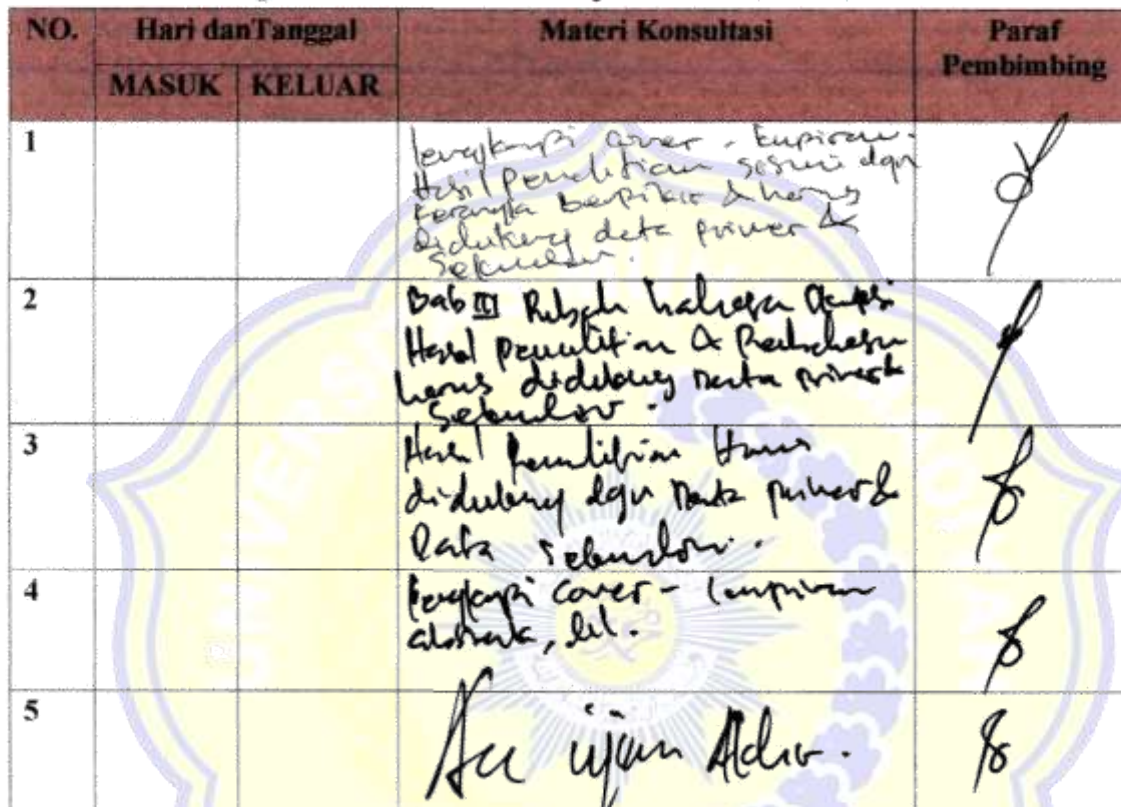 NO. Hari danTanggal Materi Konsultasi Paraf Pembimbing
MASUK KELUAR
1
lengkapi cover - lampiran.
Hasil penelitian sesuai dgn
kerangka berpikir & harus
didukung data primer &
sekunder.
2
Bab III Rubah bahasa
Hasil penelitian & Pembahasan
harus didukung data primer &
sekunder.
3
Hasil penelitian harus
didukung dgn data primer &
Data sekunder.
4
lengkapi cover - lampiran
abstrak, dll.
5
Acc ujian Akhir.